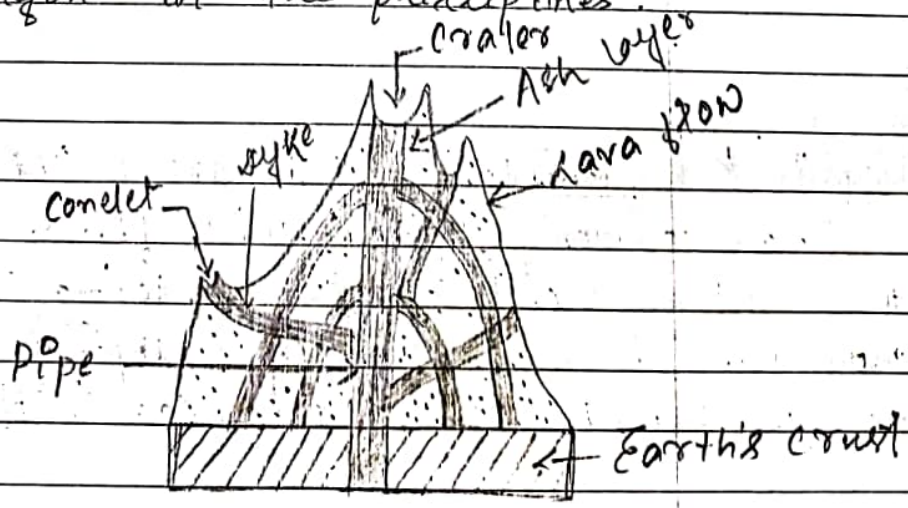 Crater
Ash layer
Lava flow
syke
Conelet
Pipe
Earth's Crust